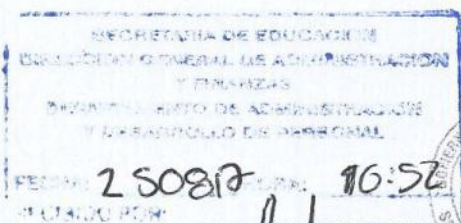 SECRETARIA DE EDUCACION
DIRECCION GENERAL DE ADMINISTRACION
Y FINANZAS
DEPARTAMENTO DE ADMINISTRACION
Y DESARROLLO DE PERSONAL
FECHA: 250817 HORA: 16:52
RECIBIDO POR: